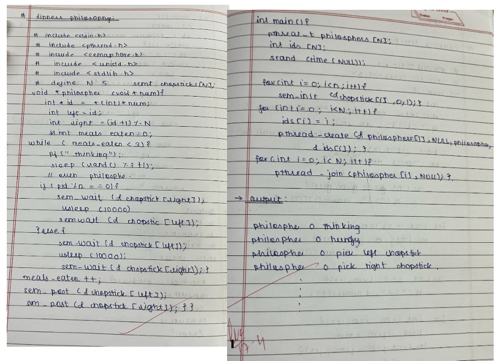 # dinners philosophy
# include <stdio.h>
# include <pthread.h>
# include <semaphore.h>
# include <unistd.h>
# include <stdlib.h>
# define N 5 semt chopsticks [N];
void * philosopher (void * num){
int * id = *(int *) num;
int left = id;
int right = (id+1) % N
int meals_eaten = 0;
while ( meals_eaten < 3) {
pf (" thinking");
sleep (rand() % 3+1);
// even philosophe
if (id % 2 == 0){
sem_wait (& chopstick [right]);
usleep (10000)
semwait (& chopstic [left]);
}else {
sem-wait (& chopstick [left]);
usleep (1000);
sem-wait (& chopstick [right]); }
meals_eaten ++;
sem_post (& chopstick [left]);
sem_post (& chopstick [right]); } }
int main () {
pthread_t philosophers [N];
int ids [N];
srand (time (NULL));
for (int i=0; i<n; i++) {
sem_init (& chopstick [i], 0, 1); }
for (int i=0; i<N; i++) {
ids [i] = i;
pthread-create (& philosopher [i], NULL, philosopher,
& ids [i]); }
for (int i=0; i<N; i++) {
pthread-join (philosopher [i], NULL); }
→ output:
philosopher 0 thinking
philosopher 0 hungry
philosopher 0 pick left chopstick
philosopher 0 pick right chopstick.